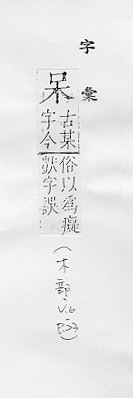 字彙
呆
古某
字今
俗以為癡
獃字誤
(木部, V.6